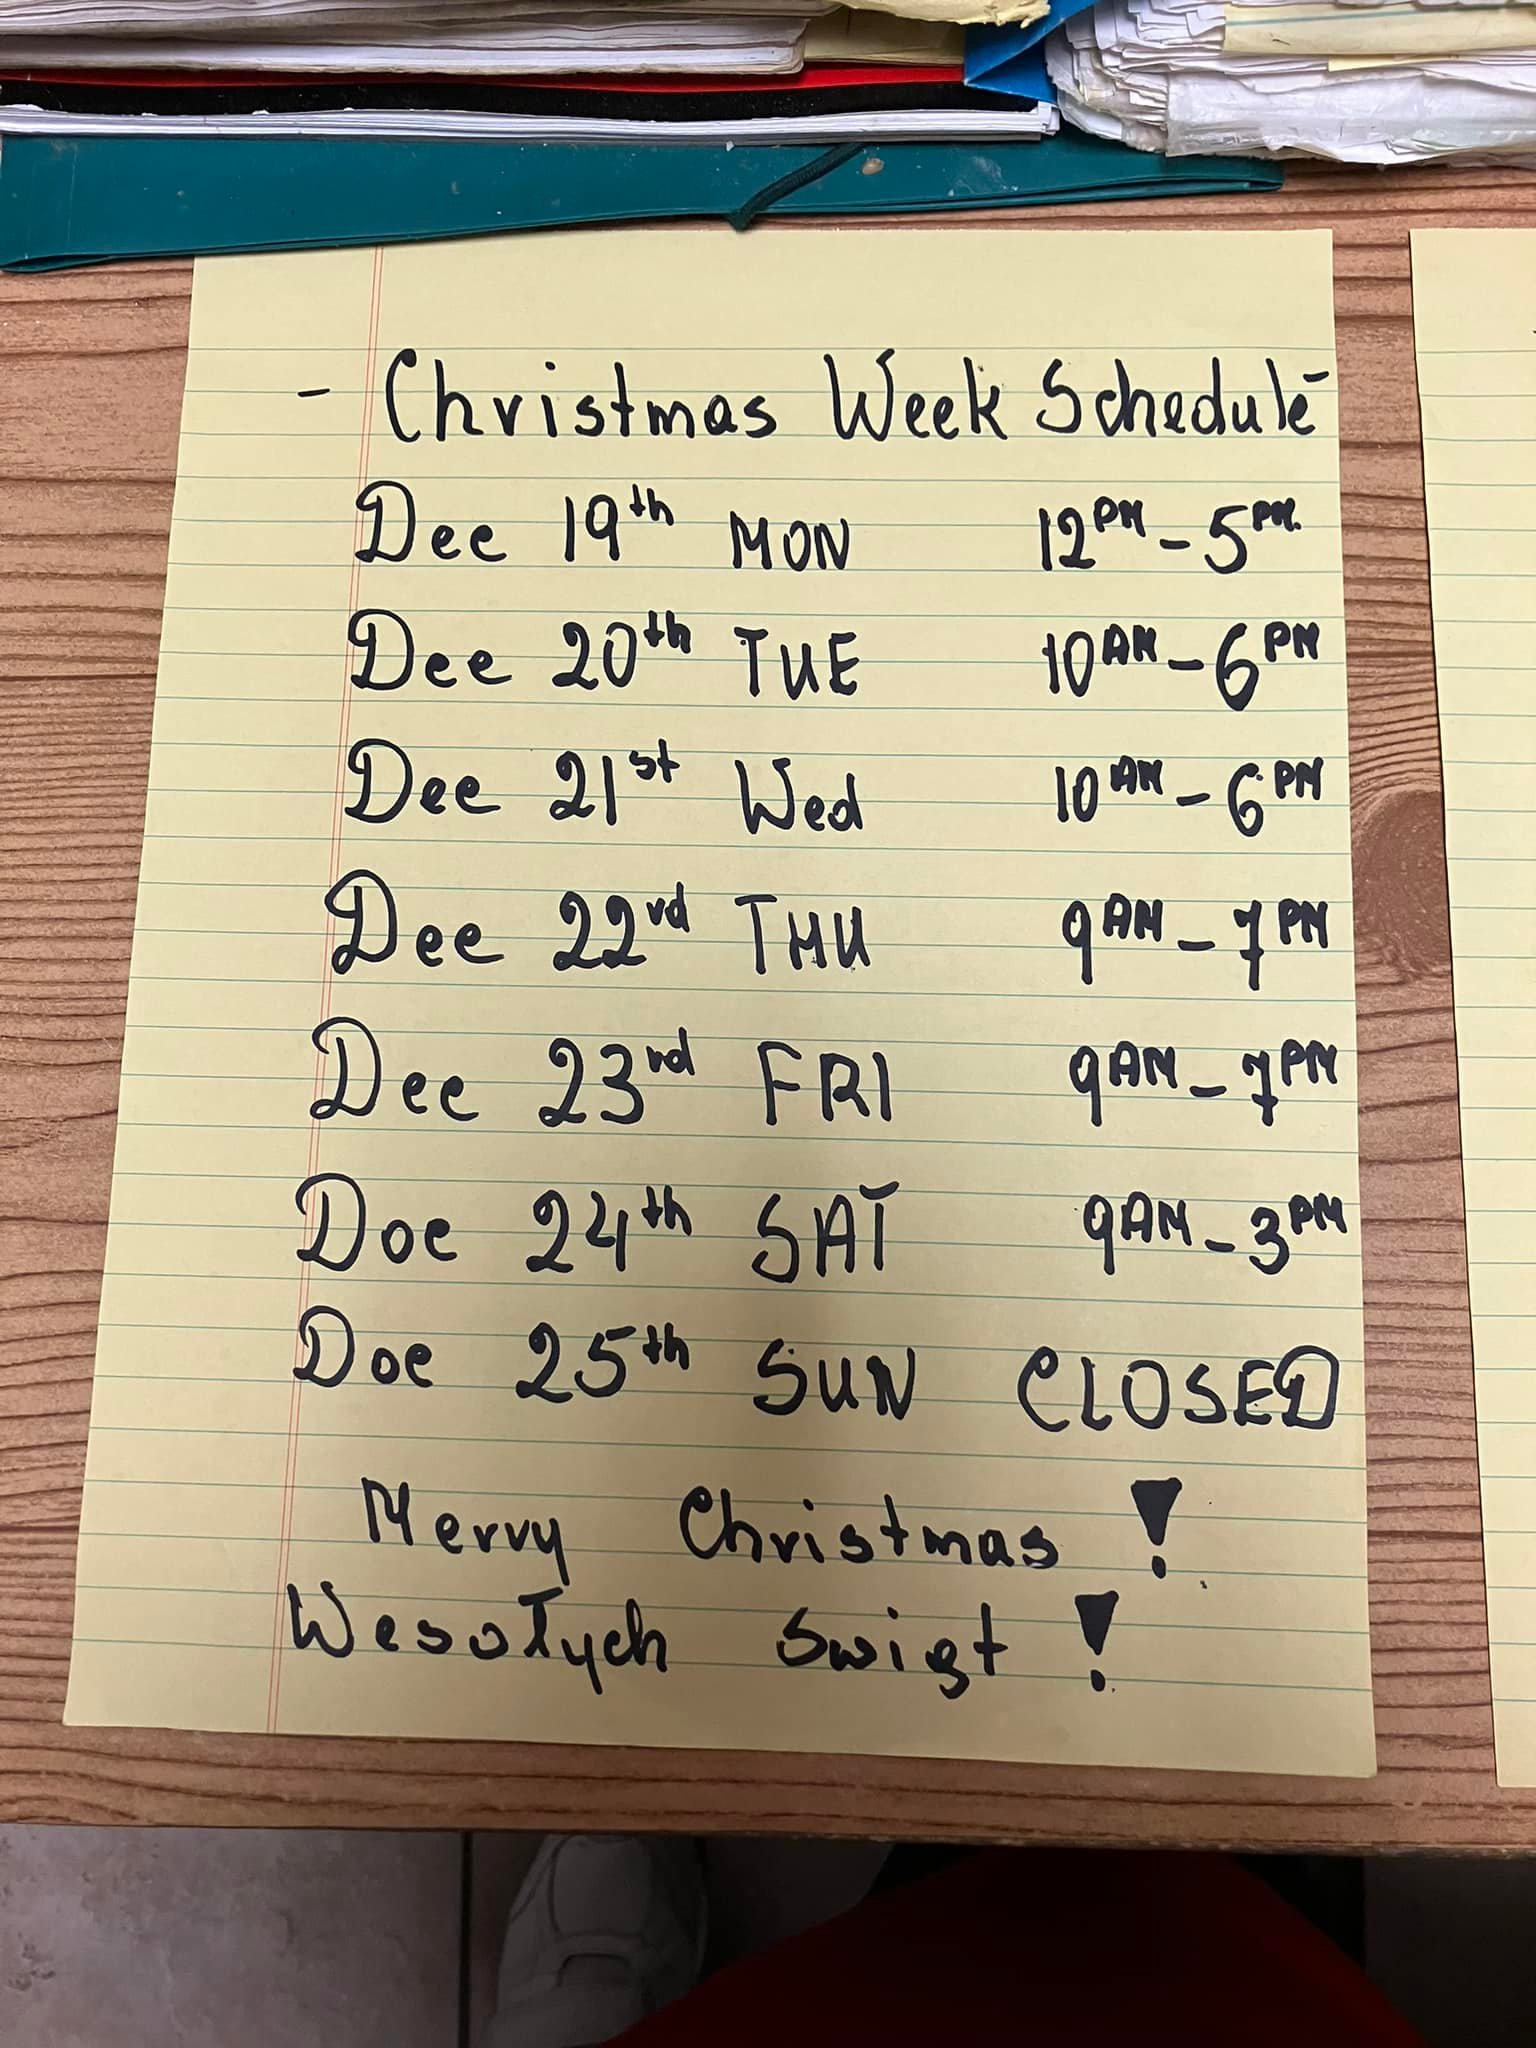 - Christmas Week Schedule -
Dec 19th MON 12PM - 5PM.
Dec 20th TUE 10AM - 6PM
Dec 21st Wed 10AM - 6PM
Dec 22rd THU 9AM - 7PM
Dec 23rd FRI 9AM - 7PM
Dec 24th SAT 9AM - 3PM
Dec 25th SUN CLOSED
Merry Christmas !
Wesołych Swięt !